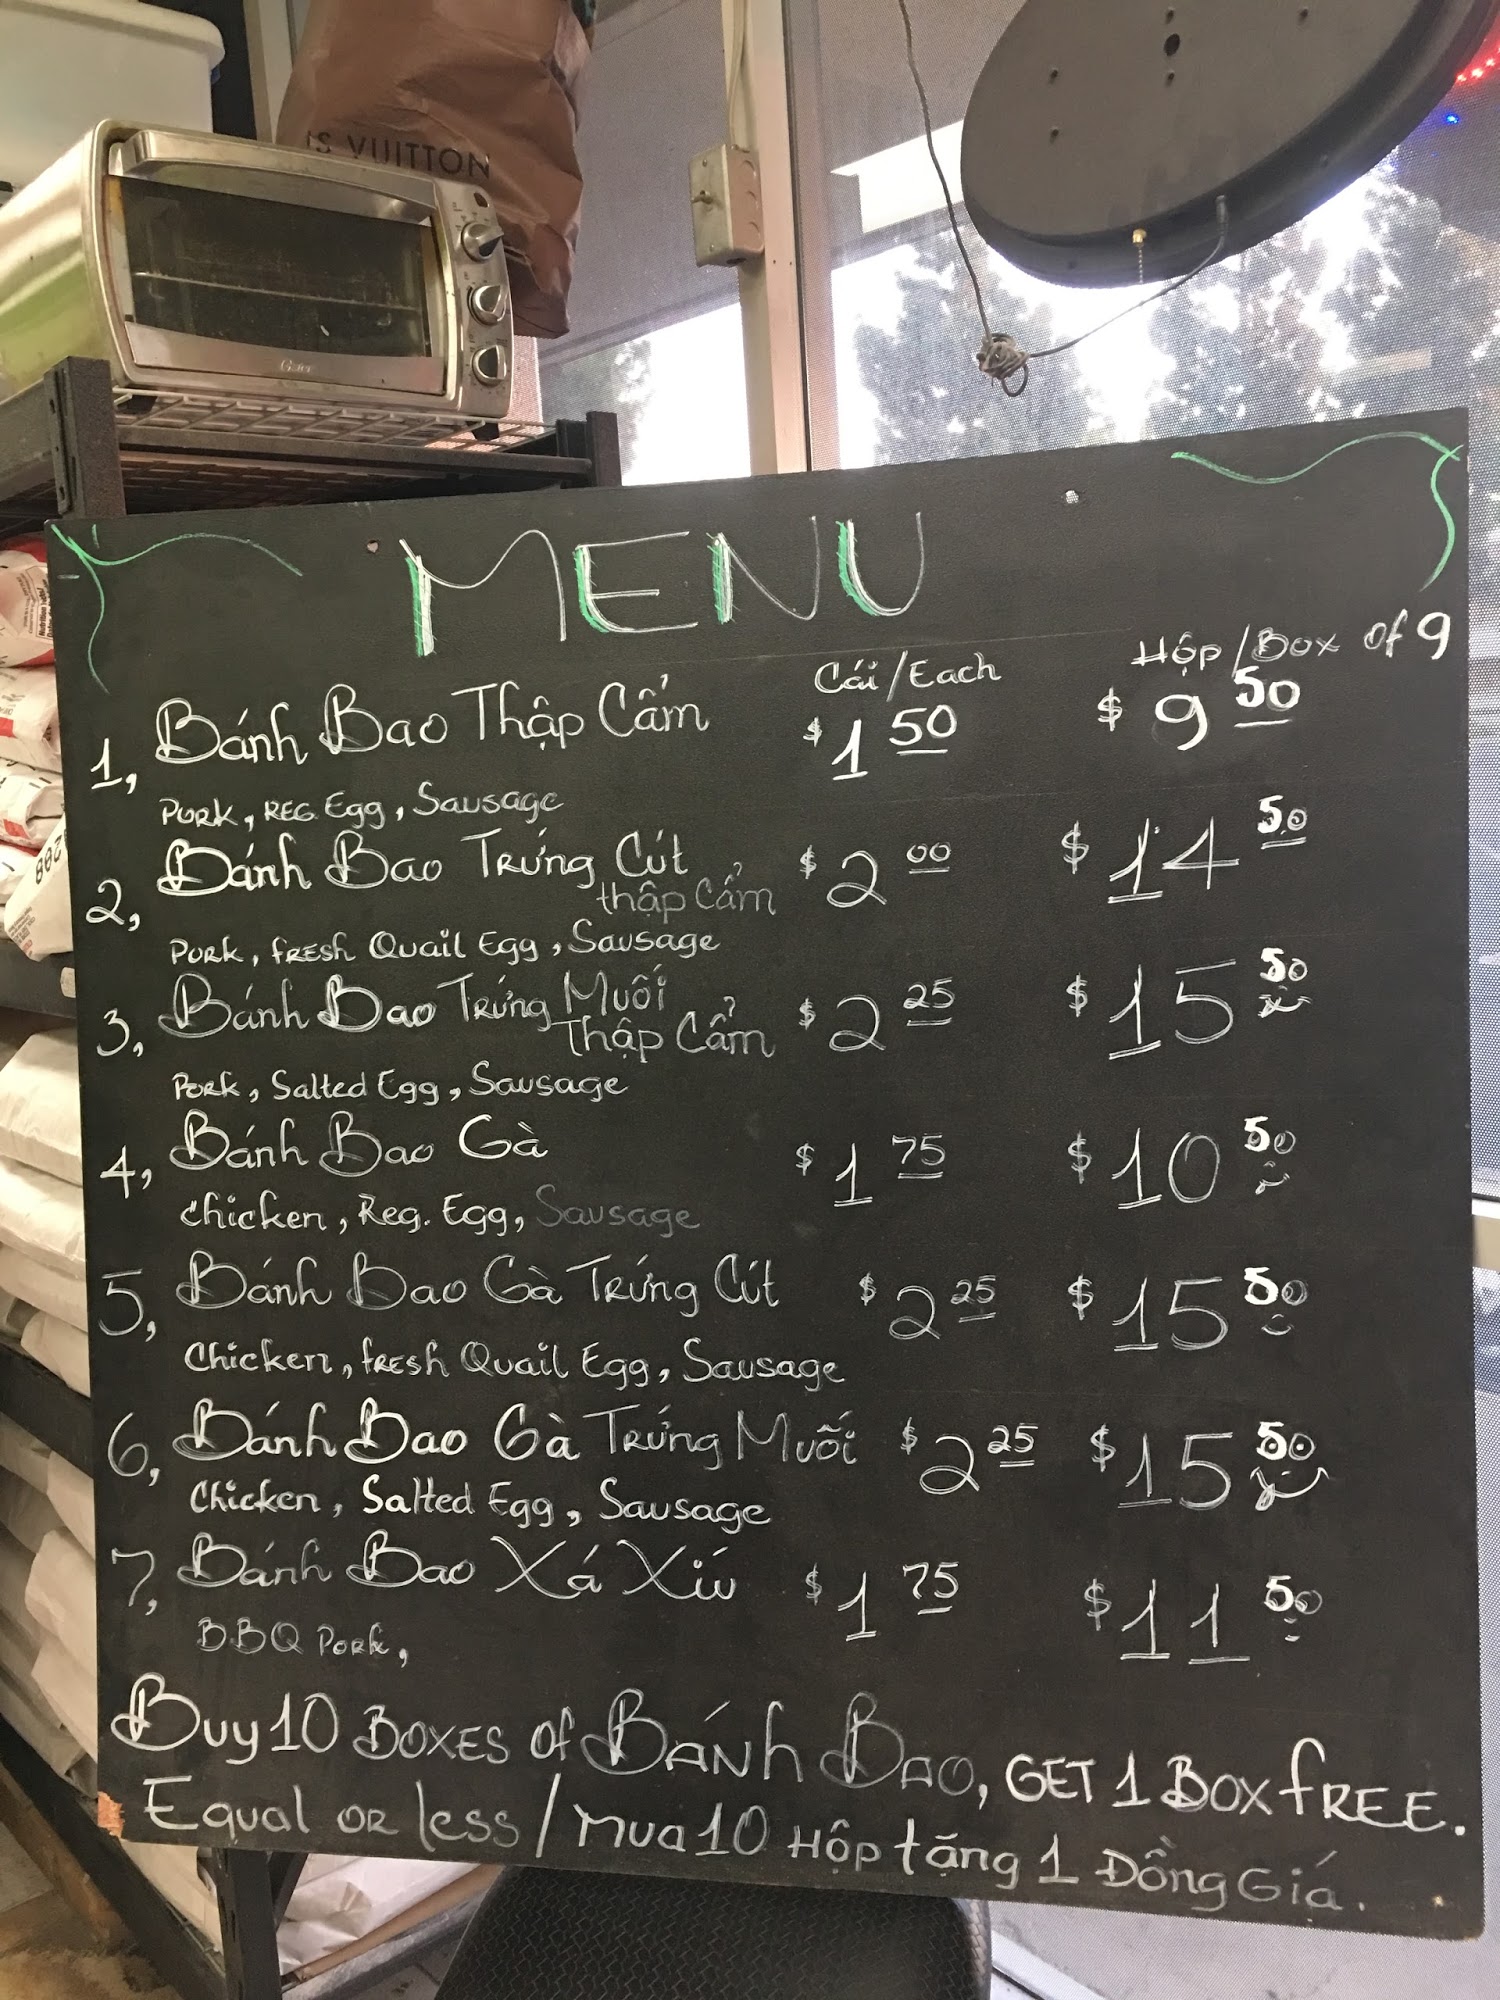 IS VUITTON
Oster
MENU
Cái/Each Hộp/Box of 9
1, Bánh Bao Thập Cẩm $1 50 $9 50
Pork, REG. Egg, Sausage
2, Bánh Bao Trứng Cút $2 00 $14 50
thập Cẩm
Pork, fresh Quail Egg, Sausage
3, Bánh Bao Trứng Muối $2 25 $15 50
Thập Cẩm
Pork, Salted Egg, Sausage
4, Bánh Bao Gà $1 75 $10 50
chicken, Reg. Egg, Sausage
5, Bánh Bao Gà Trứng Cút $2 25 $15 50
Chicken, fresh Quail Egg, Sausage
6, Bánh Bao Gà Trứng Muối $2 25 $15 50
Chicken, Salted Egg, Sausage
7, Bánh Bao Xá Xíu $1 75 $11 50
BBQ Pork,
Buy 10 Boxes of Bánh Bao, GET 1 Box fREE.
Equal or less / Mua 10 Hộp tặng 1 Đồng Giá.